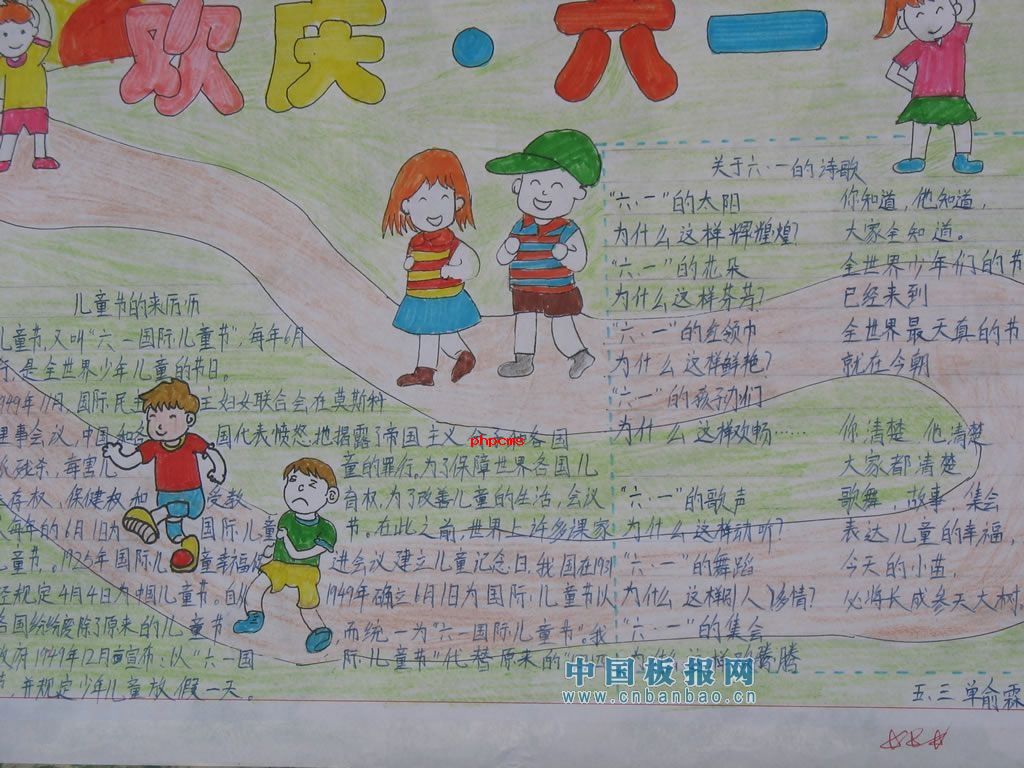 欢庆·六一
儿童节的来历
儿童节,又叫“六一国际儿童节”,每年6月
是全世界少年儿童的节日。
1949年11月,国际民主妇女联合会在莫斯科
理事会议,中国和各国代表愤怒地揭露了帝国主义 各国
残杀、毒害儿童的罪行。为了保障世界各国儿
存权、保健权和受教育权,为了改善儿童的生活,会议
每年的6月1日为国际儿童节。在此之前,世界上许多
儿童节。1925年国际儿童幸福 进会议建立儿童纪念日,我国在193
规定4月4日为中国儿童节。自 1949年确立6月1日为国际儿童节以
各国纷纷废除了原来的儿童节 而统一为“六一国际儿童节”。我
政府1949年12月宣布:以“六一国际儿童节”代替原来的“
并规定少年儿童放假一天。
关于六·一的诗歌
“六·一”的太阳
为什么这样辉煌?
“六·一”的花朵
为什么这样芬芳?
“六·一”的红领巾
为什么这样鲜艳?
“六·一”的孩子们
为什么这样欢畅……
“六·一”的歌声
为什么这样动听?
“六·一”的舞蹈
为什么这样 多情?
“六·一”的集会
为什么这样 腾
你知道,他知道,
大家全知道。
全世界少年们的节
已经来到
全世界最天真的节
就在今朝
你清楚 他清楚
大家都清楚
歌舞,故事,集会
表达儿童的幸福,
今天的小苗,
必将长成参天大树。
五、三 单俞霖
phpcms
中国板报网
www.cnbanbao.cn